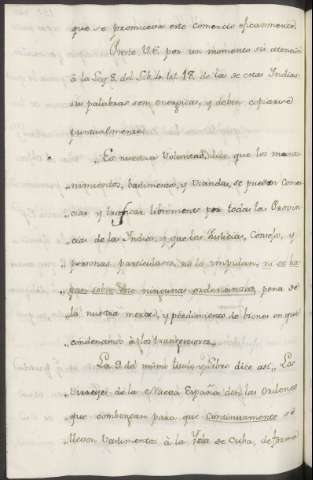 que se promueva este comercio eficazmente.
Preste V.E. por un momento su atencion
à la Ley 8. del Lib. 4. tit. 18. de las de estas Indias:
sus palabras son energicas, y deben copiarse
puntualmente.
„Es nuestra Voluntad, dice, que los mante-
„nimientos, bastimentos, y Viandas, se puedan Comer-
„ciar y traficar libremente por todas las Provin-
„cias de las Indias, y que las Justicias, Consejos, y
„personas particulares, no lo impidan, ni se ha-
„gan sobre esto ningunas ordenanzas, pena de
„la nuestra merced, y perdimiento de bienes en que
„condenamos à los transgresores.
La 9. del mismo titulo y Libro dice asi „Los
„Virreyes de la Nueva España den las ordenes
„que combengan para que continuamente se
„lleven bastimentos à la Isla de Cuba, de forma